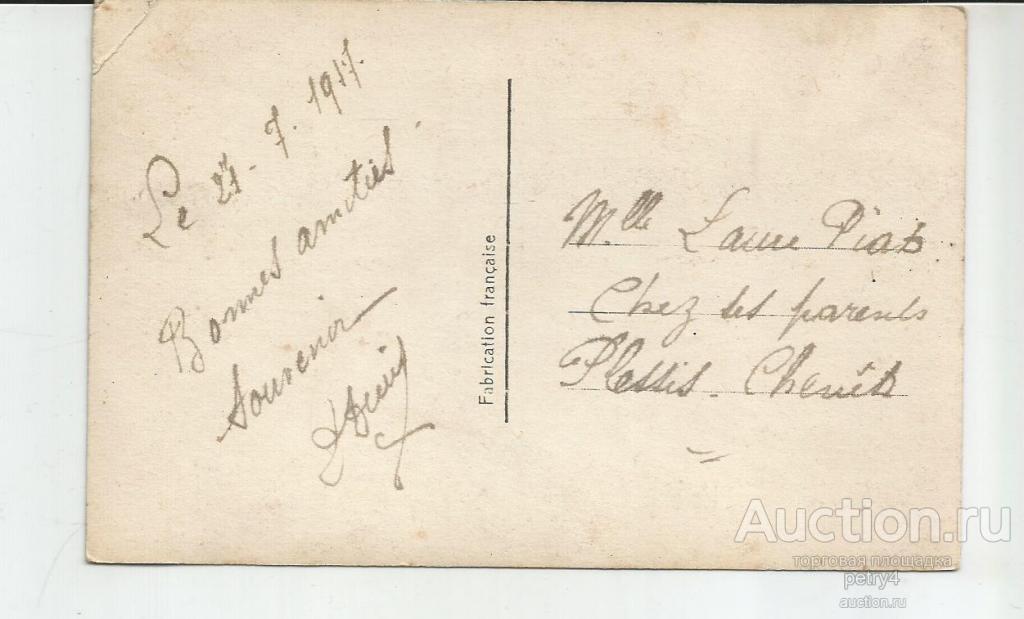 Le 21-7.1917.
Bonnes amitiés
Souvenir
Fabrication française
Mlle Laure Piat
Chez ses parents
Plessis-Chenêt
Auction.ru
торговая площадка
petry4
auction.ru